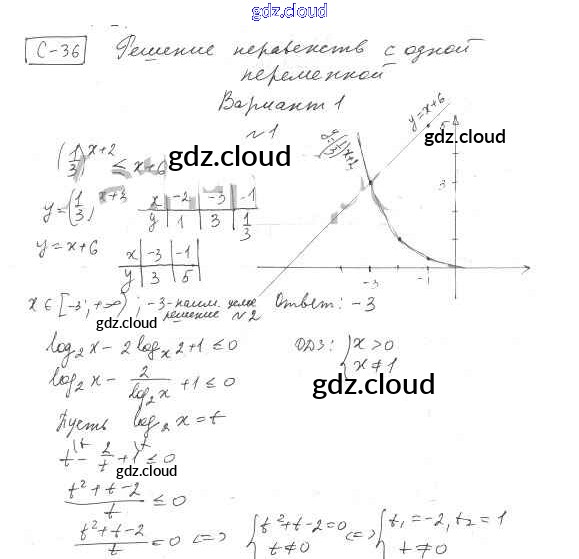 gdz.cloud
С-36 Решение неравенств с одной
переменной
Вариант 1
№1
(1/3)^x+2 ≤ x+6
gdz.cloud
y=(1/3)^x+3
x | -2 | -3 | -1
y | 1 | 3 | 1/3
y = x+6
x | -3 | -1
y | 3 | 5
y=x+6
gdz.cloud
3
-3 -1
x ∈ [-3; +∞); -3-наим. целое
решение
Ответ: -3
gdz.cloud
№2
log₂x - 2logₓ2+1 ≤ 0
ОДЗ: { x > 0
x ≠ 1
log₂x - 2/log₂x +1 ≤ 0
gdz.cloud
Пусть log₂x = t
t - 2/t + 1 ≤ 0
gdz.cloud
t²+t-2/t ≤ 0
t²+t-2/t = 0 <=> { t²+t-2=0 <=> { t₁=-2, t₂=1
t≠0 t≠0